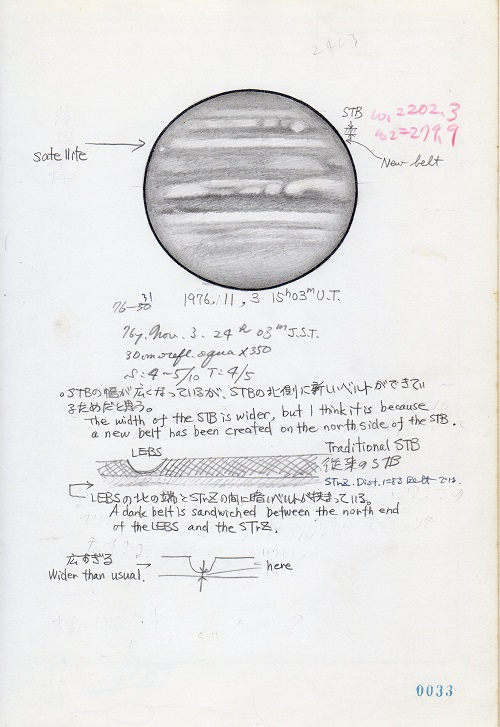 STB
ω1=202.3
ω2=279.9
satellite
New belt
31
76-30
1976, 11, 3 15h03m U.T.
76y. Nov. 3. 24h 03m J.S.T.
30cm refl. aqua x350
S: 4~5/10 T: 4/5
。STBの幅が広くなっているが、STBの北側に新しいベルトができてい
るためだと思う。
The width of the STB is wider, but I think it is because
a new belt has been created on the north side of the STB.
LEBS
Traditional STB
従来のSTB
STrZ. Dist. による Belt では
LEBSの北の端とSTrZの間に暗いベルトが挟まっている。
A dark belt is sandwiched between the north end
of the LEBS and the STrZ.
広すぎる
Wider than usual.
here
0033